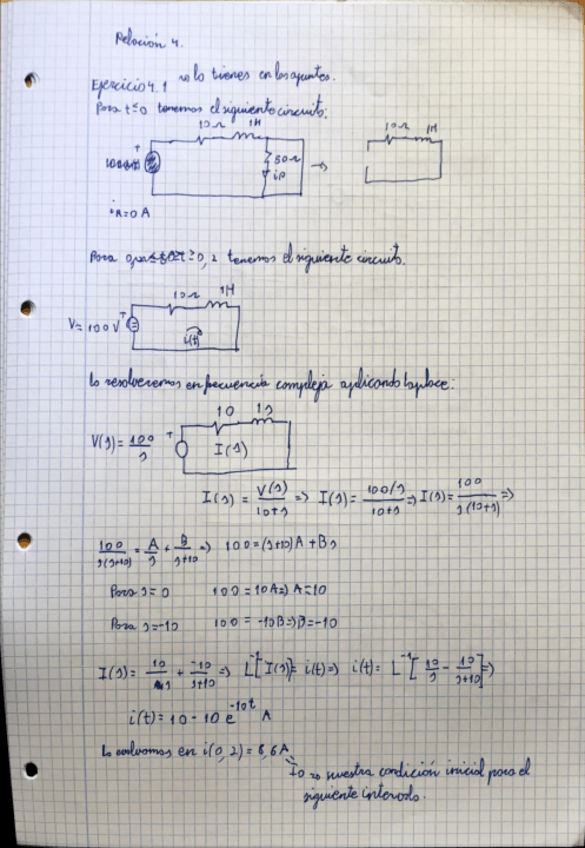 Relación 4.
Ejercicio 4.1 → lo tienes en los apuntes.
Para t≤0 tenemos el siguiente circuito:
10Ω 1H
10Ω 1H
+
50Ω
iR
iR=0 A
Para t≥0,2 tenemos el siguiente circuito.
10Ω 1H
V=100V +
i(t)
Lo resolveremos en frecuencia compleja aplicando Laplace:
10 1s
V(s)=100/s +
I(s)
I(s) = V(s)/10+s => I(s)= 100/s/10+s => I(s)= 100/s(10+s) =>
100/s(s+10) = A/s + B/s+10 => 100=(s+10)A+Bs
Para s=0 100=10A=>A=10
Para s=-10 100=-10B=>B=-10
I(s)= 10/s + -10/s+10 => L⁻¹[I(s)]= i(t)=> i(t)= L⁻¹[10/s - 10/s+10]=>
i(t)=10-10 e^-10t A
Lo evaluamos en i(0,2)=8,6A
Io → nuestra condición inicial para el
siguiente intervalo.